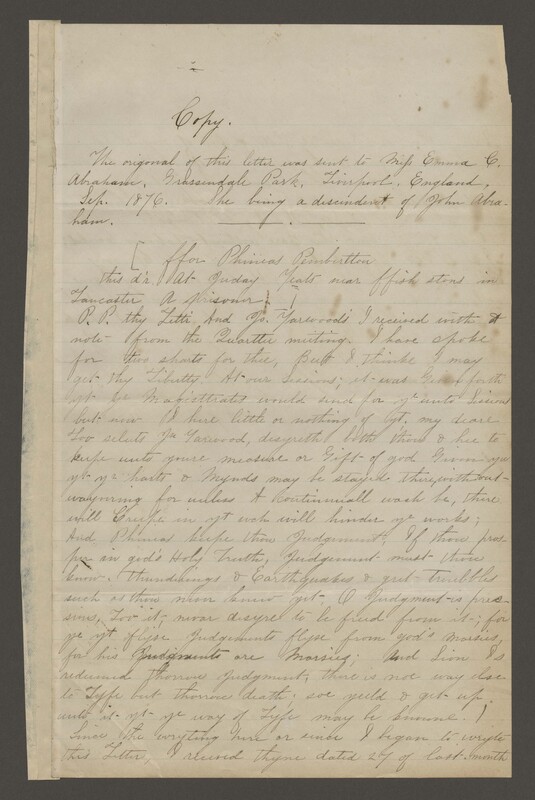 Copy.
The origonal of this letter was sent to Miss Emma C.
Abraham, Grassendale Park, Liverpool, England,
Sep. 1876. She being a descendent of John Abra-
ham.
[ ffor Phineas Pembertton
this d'r At Juday Yeats near ffish stons in
Lancaster A prisoner } ]
P. P. thy Letti, And Jo. Yarwoods I received with A
note from the Quartte meiting. I have spoke
for two sharts for thee, Butt I thinke I may
get thy Libertty. At our sessions; it was Given forth
yt ye Magistrats would send for yu unto Sissions
but now I hire little or nothing of yt. my
Loo. salute Jo Yarwood, disyreth both thou & hee to
keipe unto youre measure or Gift of god Given you
yt yr harts & Mynds may be stayed there, with out
wayvring for unless A Kontinuall wach be, there
will Creepe in yt wch will hinder ye works;
And Phinias keipe thou Judgement; If thou pros-
per in god's Holy Truth, Judgement must thou
know. Thundrings & Earthquakes & gret trubbles
such as thou never knew yet. O Judgment is prec-
sious, Loo it; never disyre to be fried from it; for
ye yt flyse Judgements flyse from god's marsies,
for his Judgments are Marsies; And Sion Is
redeimed thorrow Judgment, there is not way else
to Lyfe but thorrow death; soe yeild & get up
unto it yt ye way of Lyfe may be knowne. )
Since the wryting here or since I began to wryte
this Letter, I received thyne dated 27 of last month